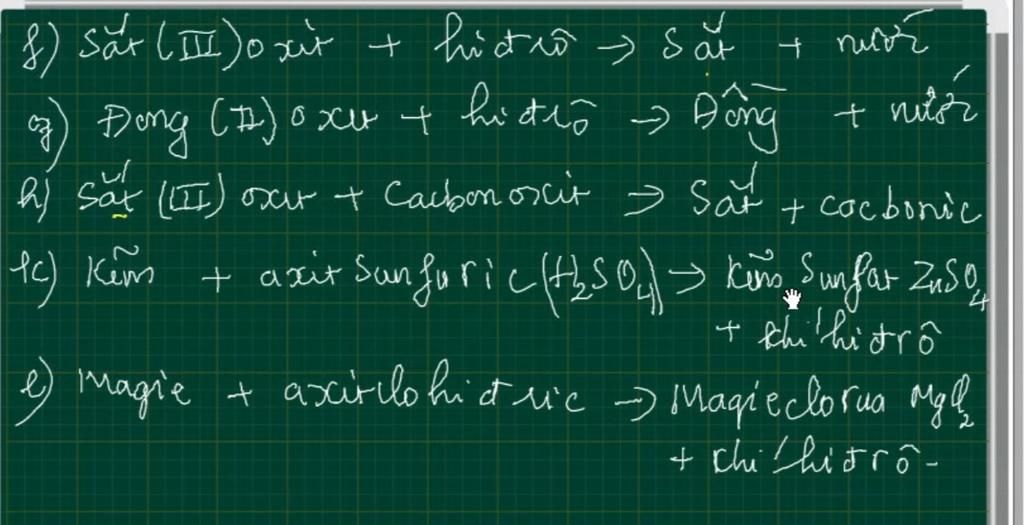 f) Sắt (III) oxit + hiđrô → Sắt + nước
g) Đồng (II) oxit + hiđrô → Đồng + nước
h) Sắt (III) oxit + Cacbon oxit → Sắt + cacbonic
k) Kẽm + axit Sunfuric (H₂SO₄) → Kẽm Sunfat ZnSO₄
+ khí hiđrô
l) Magie + axit clohiđric → Magie clorua MgCl₂
+ khí hiđrô -